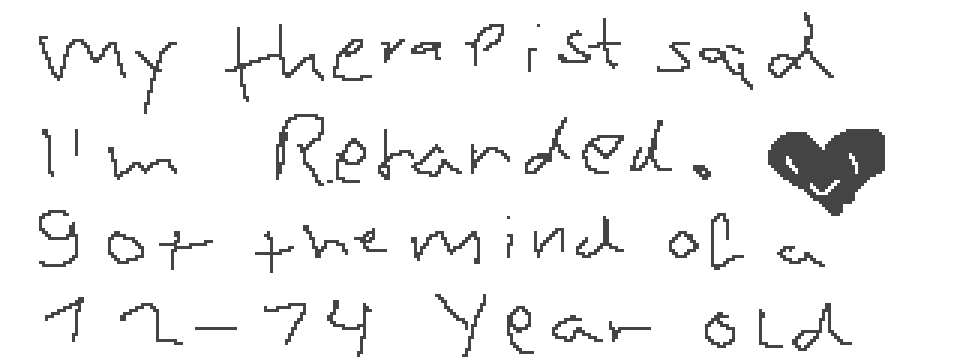 my therapist said
I'm Retarded.
got the mind of a
12-14 Year old